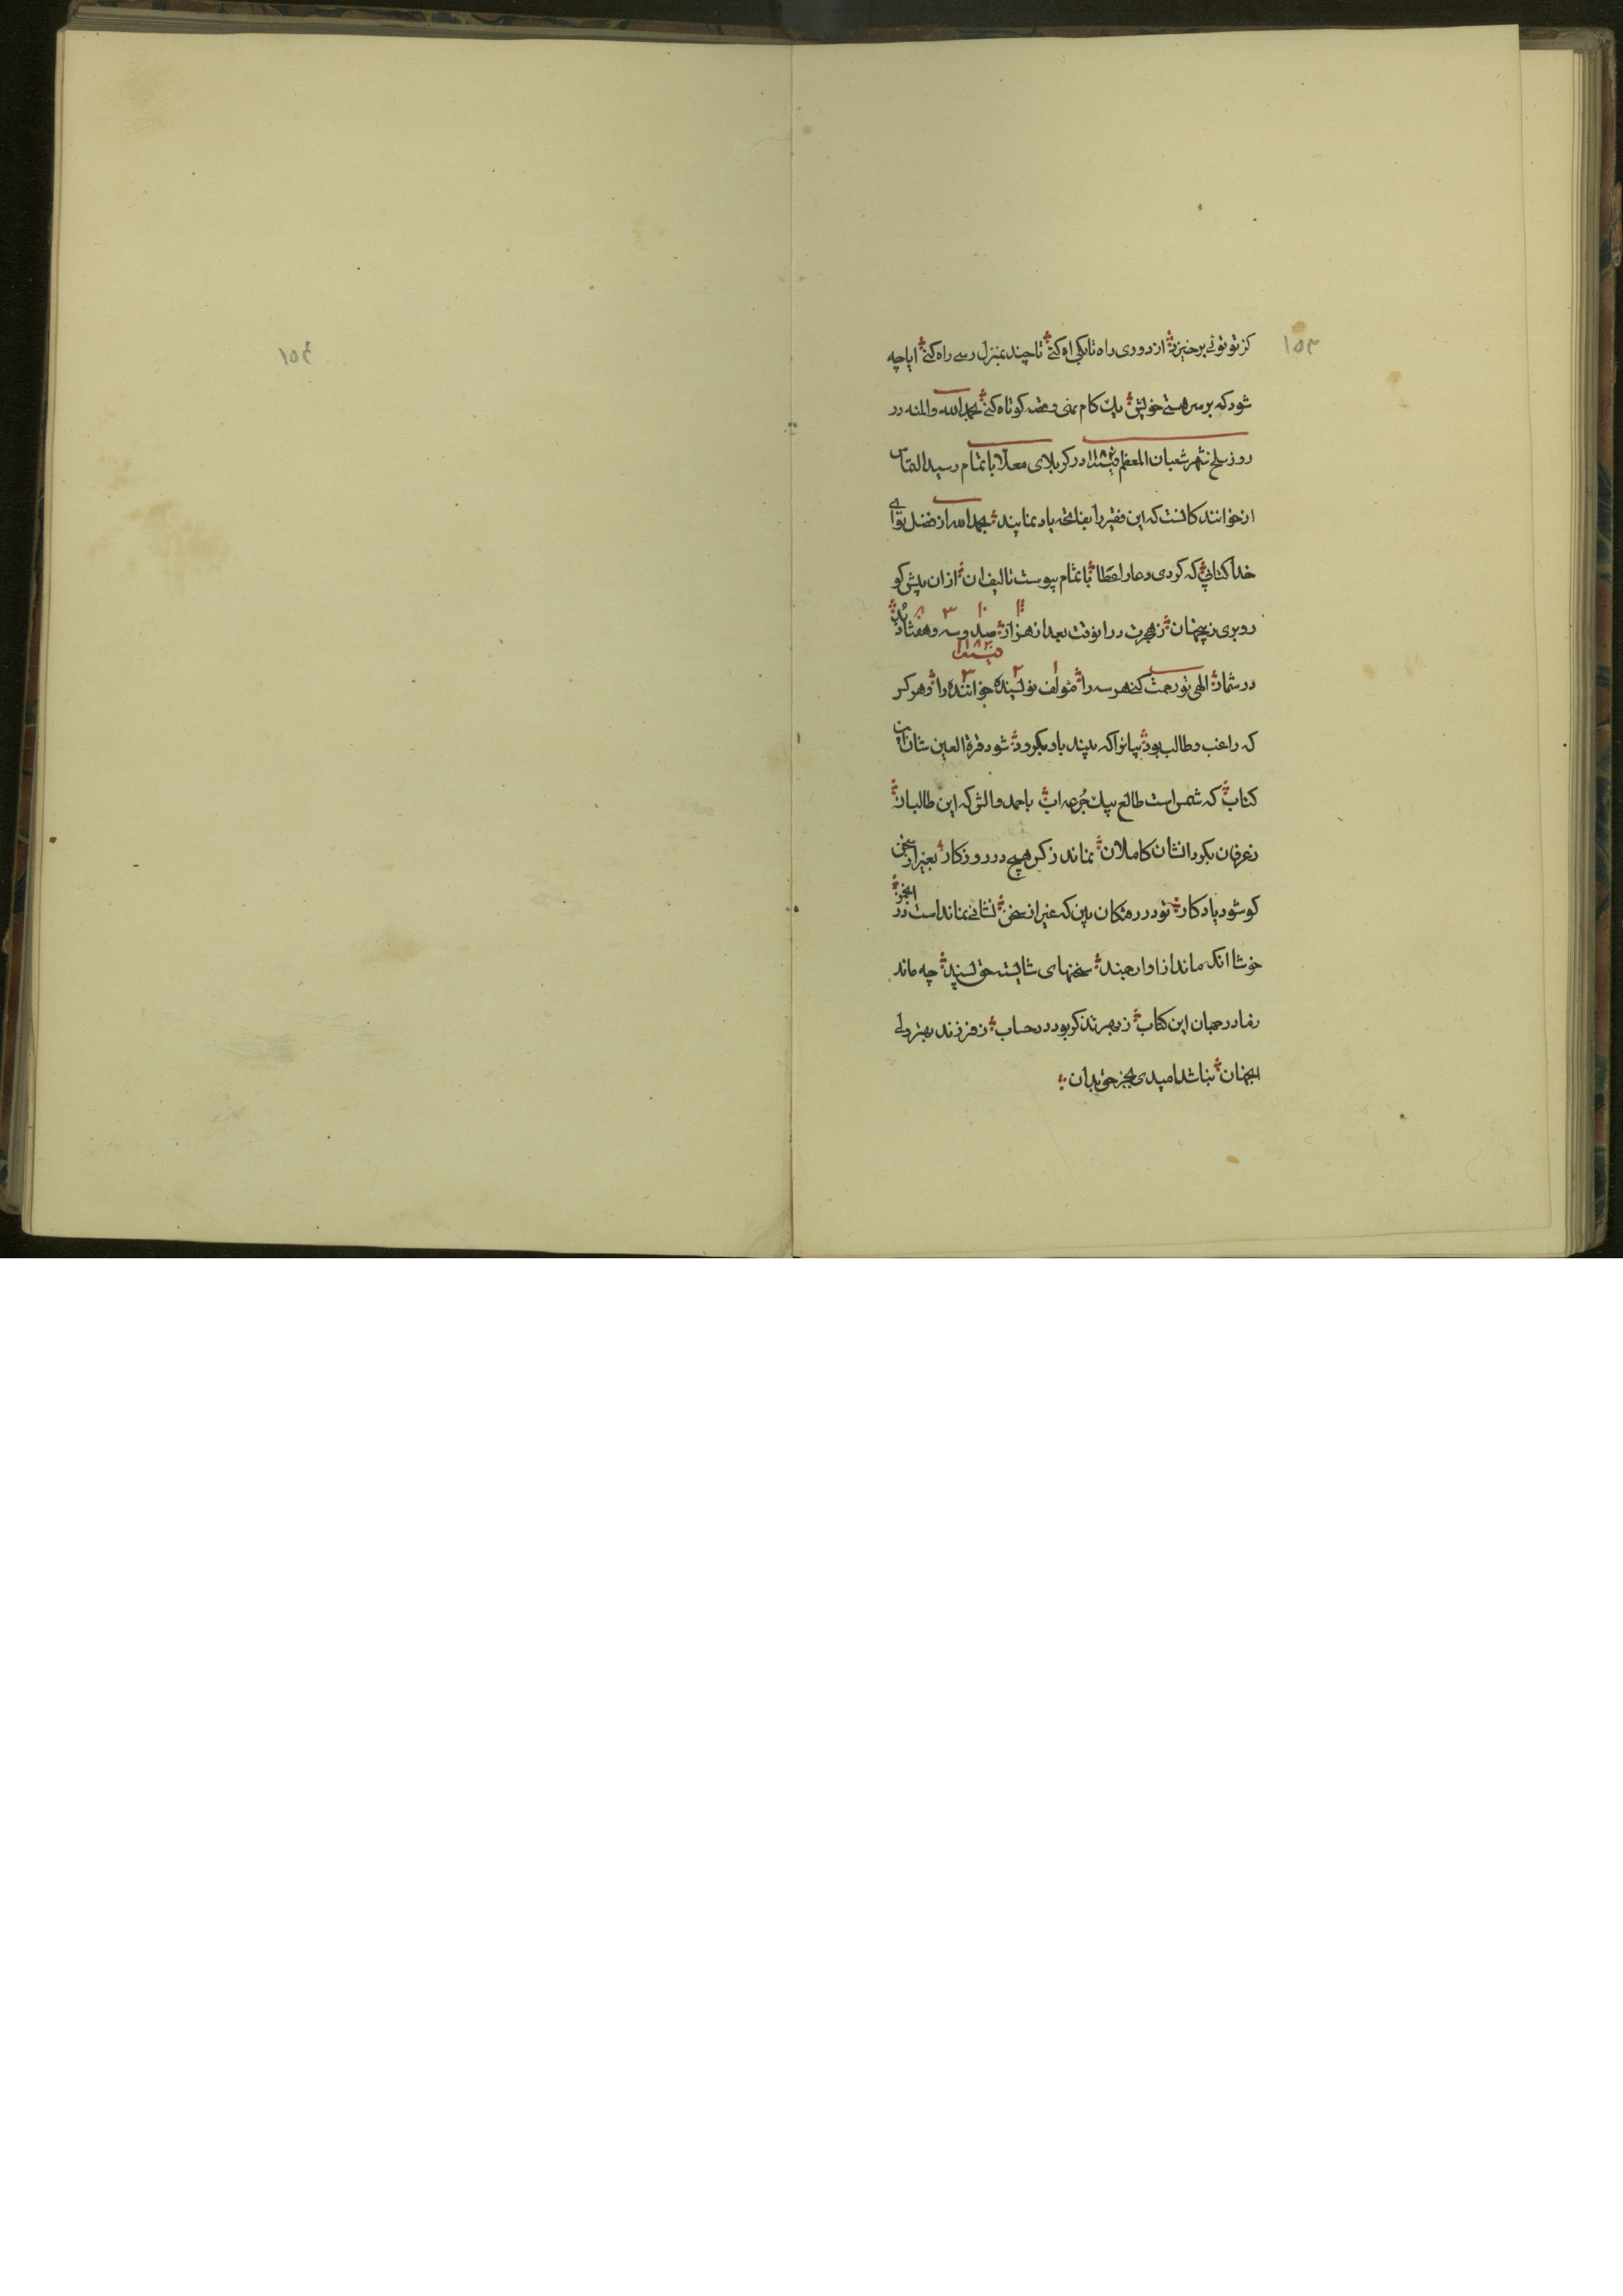 ۱۵۳
کز تو توئی برخیزد از دوری راه تا بکی اه کنی تا چند بمنزل رسی راه کنی ایا چه
شود که بر سر هستی خویش یک کام نهی و قصه کوتاه کنی بحمد الله والمنه در
روز سلخ شهر شعبان المعظم در کربلای معلا باتمام رسید التماس
از خوانند کانست که این فقیر را بفاتحه یاد نمایند بحمد الله از فضل تو ای
خدا کتابی که کردی دعا را عطا باتمام پیوست تالیف ان از ان پیش کو
رو بری زیجهان ز هجرت درانوقت بعد از هزار صد و سه و هشتاد بُد
۱۱۸۳
در شمار الهی تو رحمت کنی هر سه را مؤلف نویسنده خواننده را و هر کس
که راغب و طالب بود بیانرا که بیند باد بکرود شود قرة العین شان این
کتاب که شمس است طالع بیک جُرعه اب باحمد والش که این طالبان
ز عرفان بکردانشان کاملان نماند ز کس هیچ در روزکار بغیر از سخن
کو شود یادکار تو در رفتکان بین که غیر از سخن نشانی نمانداست در انجمن
خوشا انکه ماند از او ارجمند سخنهای شایسته حق پسند چه ماند
رضا در جهان این کتاب ز بهر تذکر بود در حساب ز فرزند بهتر ولی
انجهان نباشد امیدی بجز حق بدان
۱۵۴